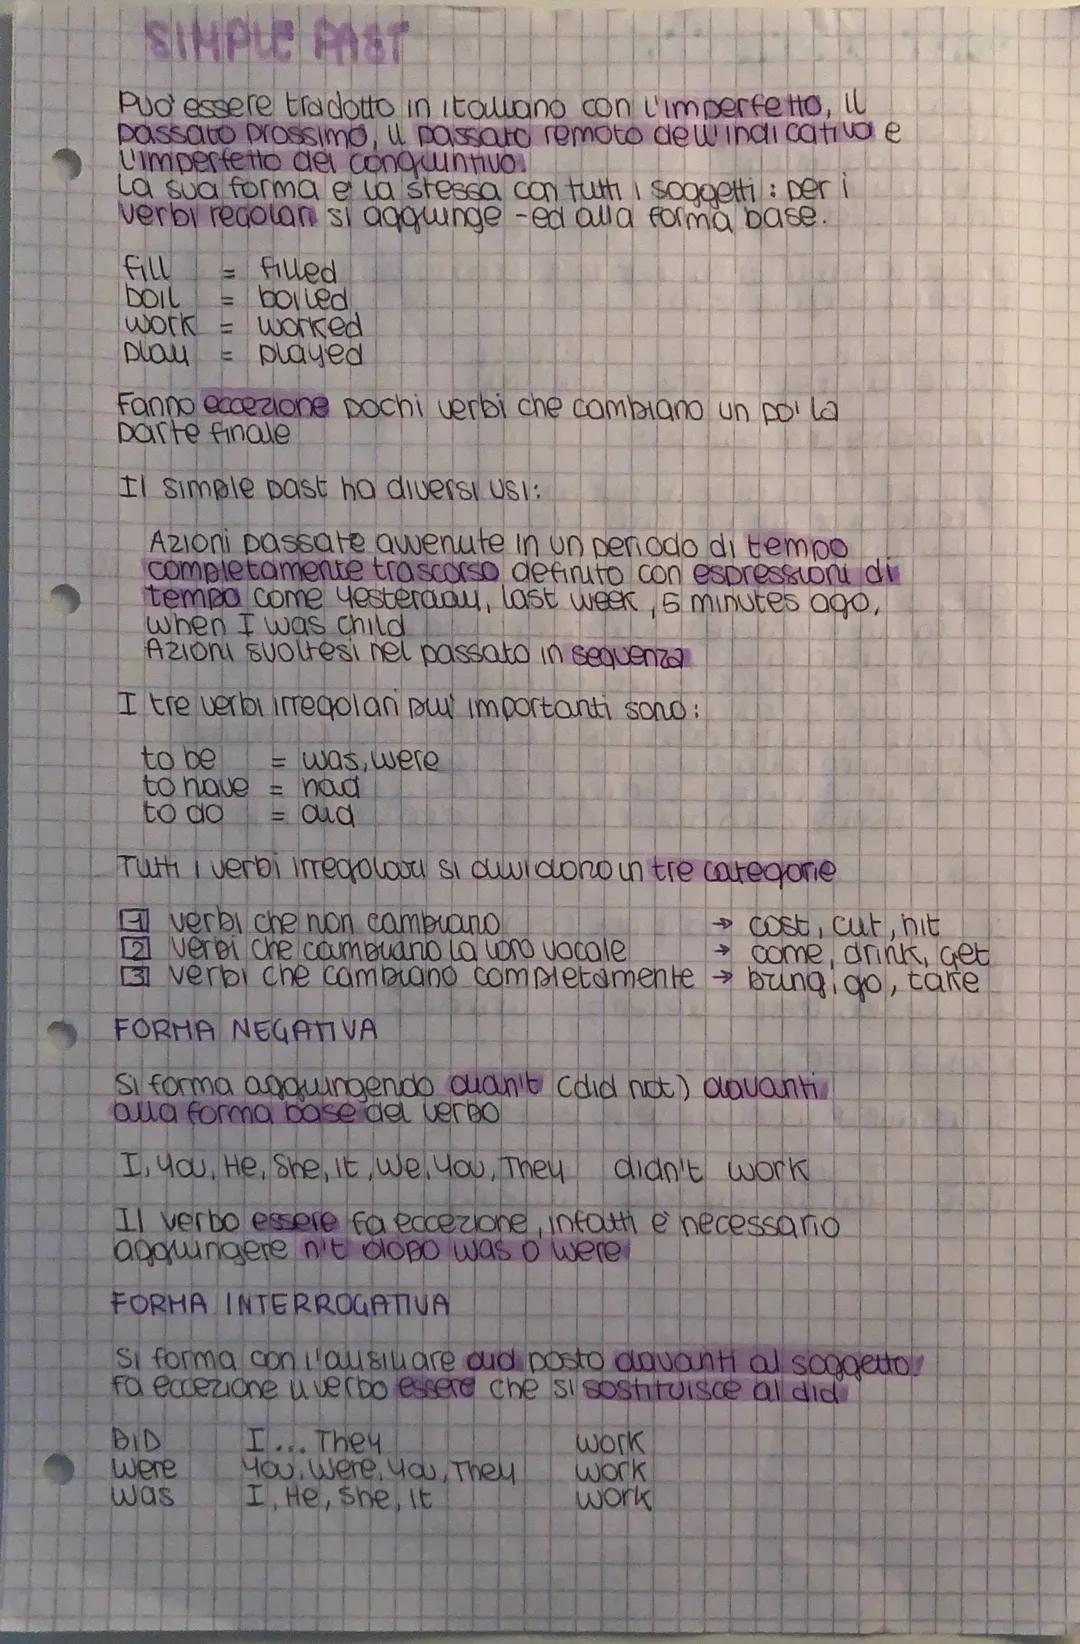 SIMPLE PAST
Può essere tradotto in italiano con l'imperfetto, il
passato prossimo, il passato remoto dell'indicativo e
l'imperfetto del congiuntivo.
La sua forma è la stessa con tutti i soggetti: per i
verbi regolari si aggiunge -ed alla forma base.
fill = filled
boil = boiled
work = worked
play = played
Fanno eccezione pochi verbi che cambiano un po' la
parte finale
Il simple past ha diversi usi:
Azioni passate avvenute in un periodo di tempo
completamente trascorso definito con espressioni di
tempo come yesterday, last week, 5 minutes ago,
when I was child
Azioni svoltesi nel passato in sequenza
I tre verbi irregolari più importanti sono:
to be = was, were
to have = had
to do = did
Tutti i verbi irregolari si dividono in tre categorie
1 verbi che non cambiano → cost, cut, hit
2 verbi che cambiano la loro vocale → come, drink, get
3 verbi che cambiano completamente → bring, go, take
FORMA NEGATIVA
Si forma aggiungendo didn't (did not) davanti
alla forma base del verbo
I, You, He, She, it, We, You, They didn't work
Il verbo essere fa eccezione, infatti è necessario
aggiungere n't dopo was o were
FORMA INTERROGATIVA
Si forma con l'ausiliare did posto davanti al soggetto.
fa eccezione il verbo essere che si sostituisce al did
DID I... They work
Were You, Were, You, They work
Was I, He, She, It work